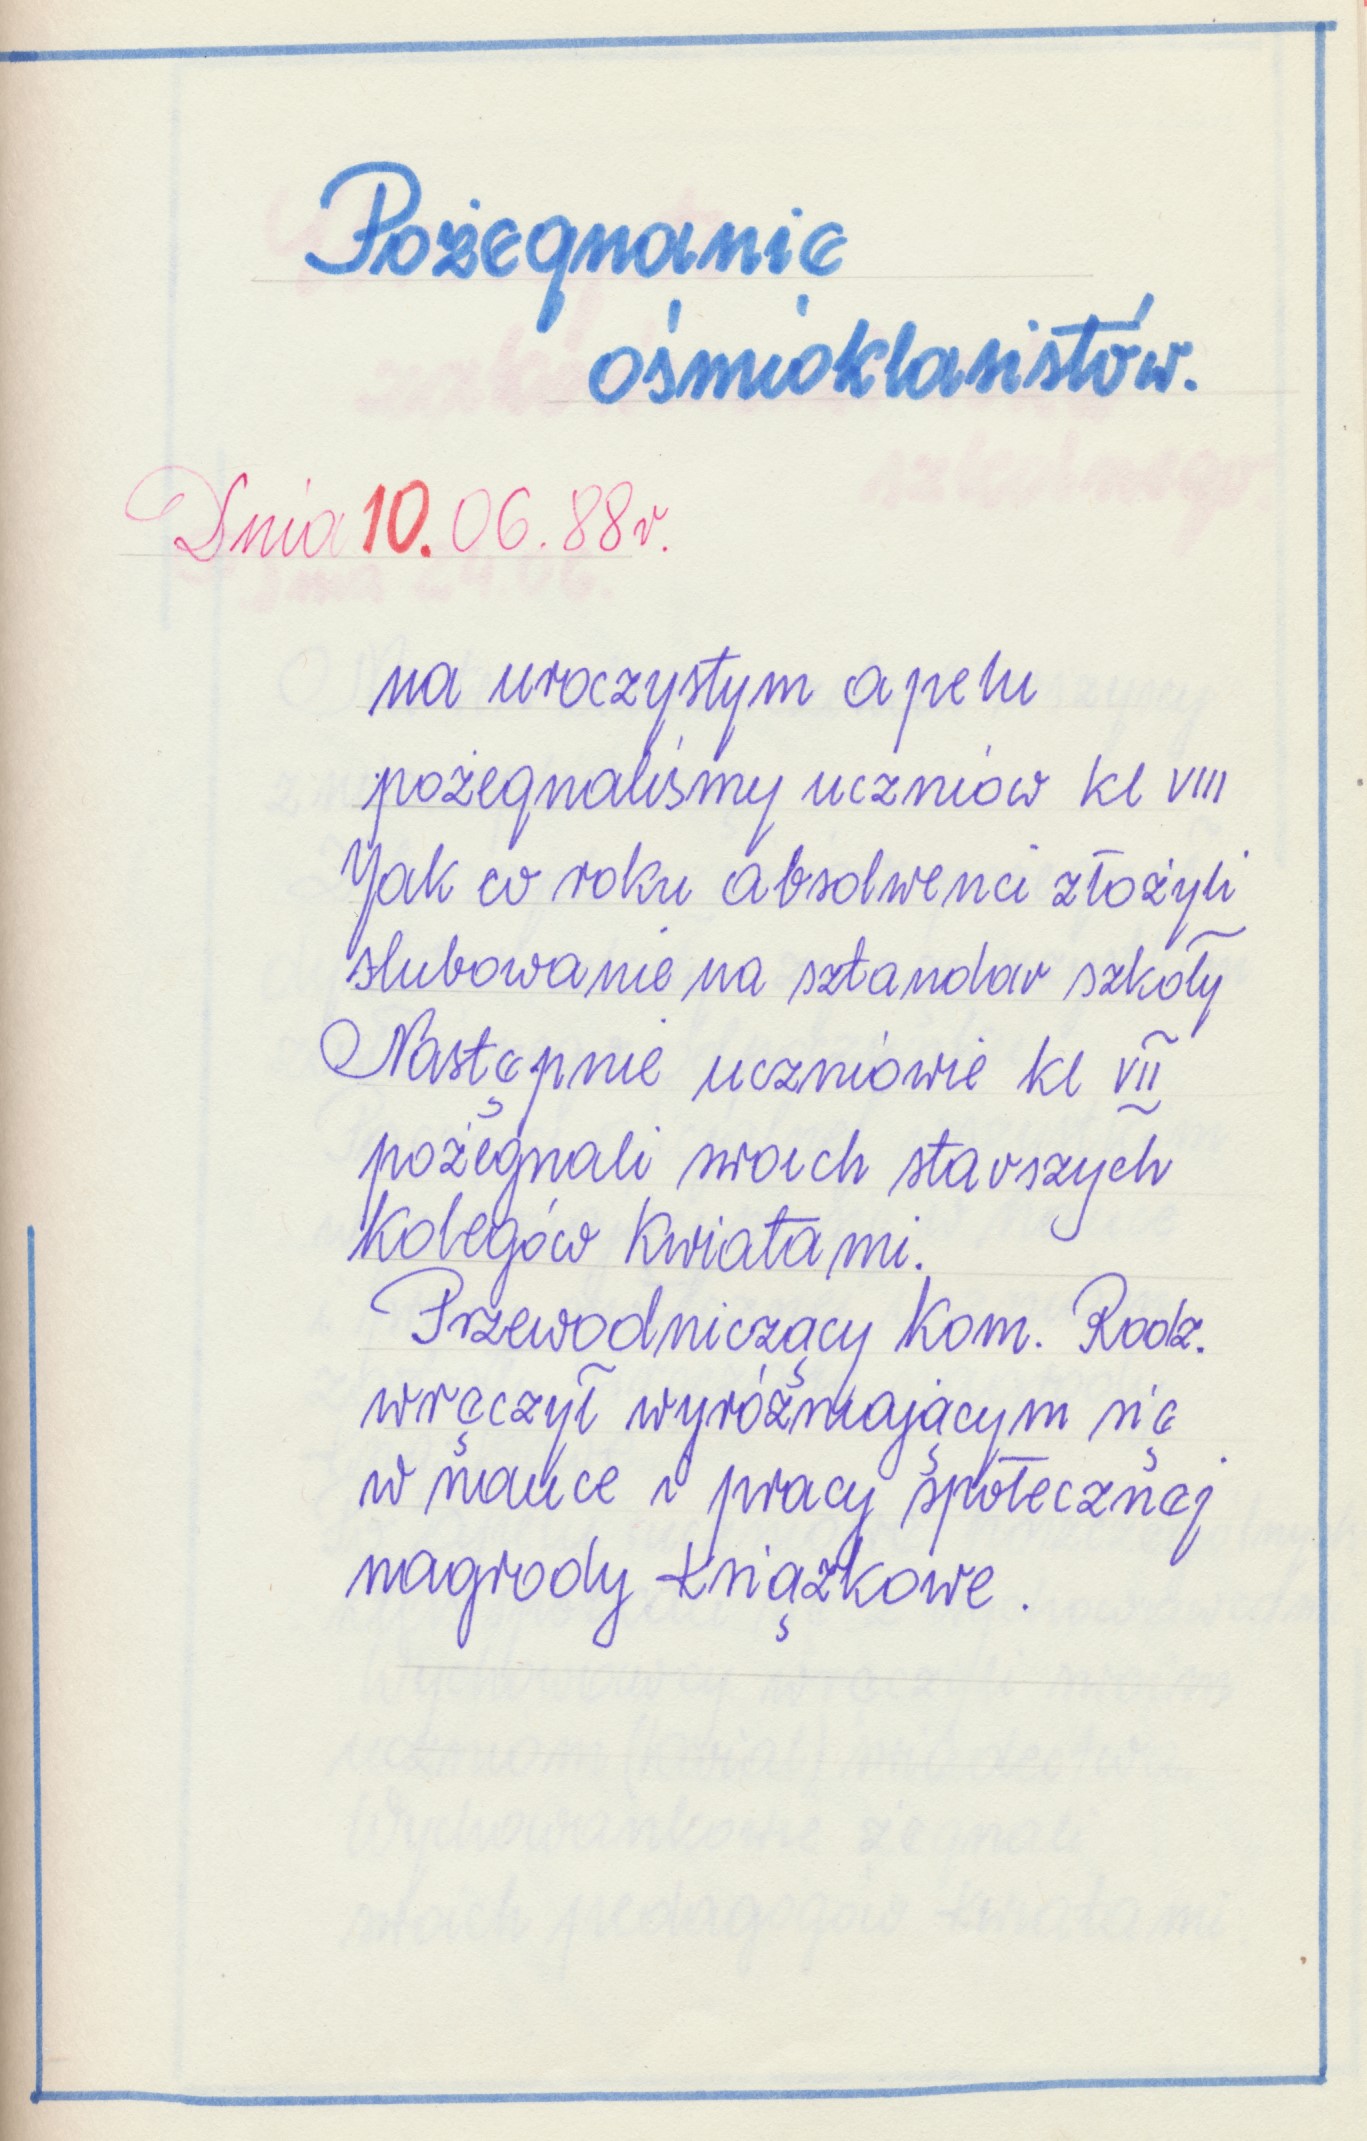 Pożegnanie
ośmioklasistów.
Dnia 10. 06. 88r.
na uroczystym apelu
pożegnaliśmy uczniów kl VIII
Jak co roku absolwenci złożyli
slubowanie na sztandar szkoły
Następnie uczniowie kl VII
pożegnali swoich starszych
kolegów kwiatami.
Przewodniczący Kom. Rodz.
wręczył wyróżniającym się
w nauce i pracy społecznej
nagrody książkowe.